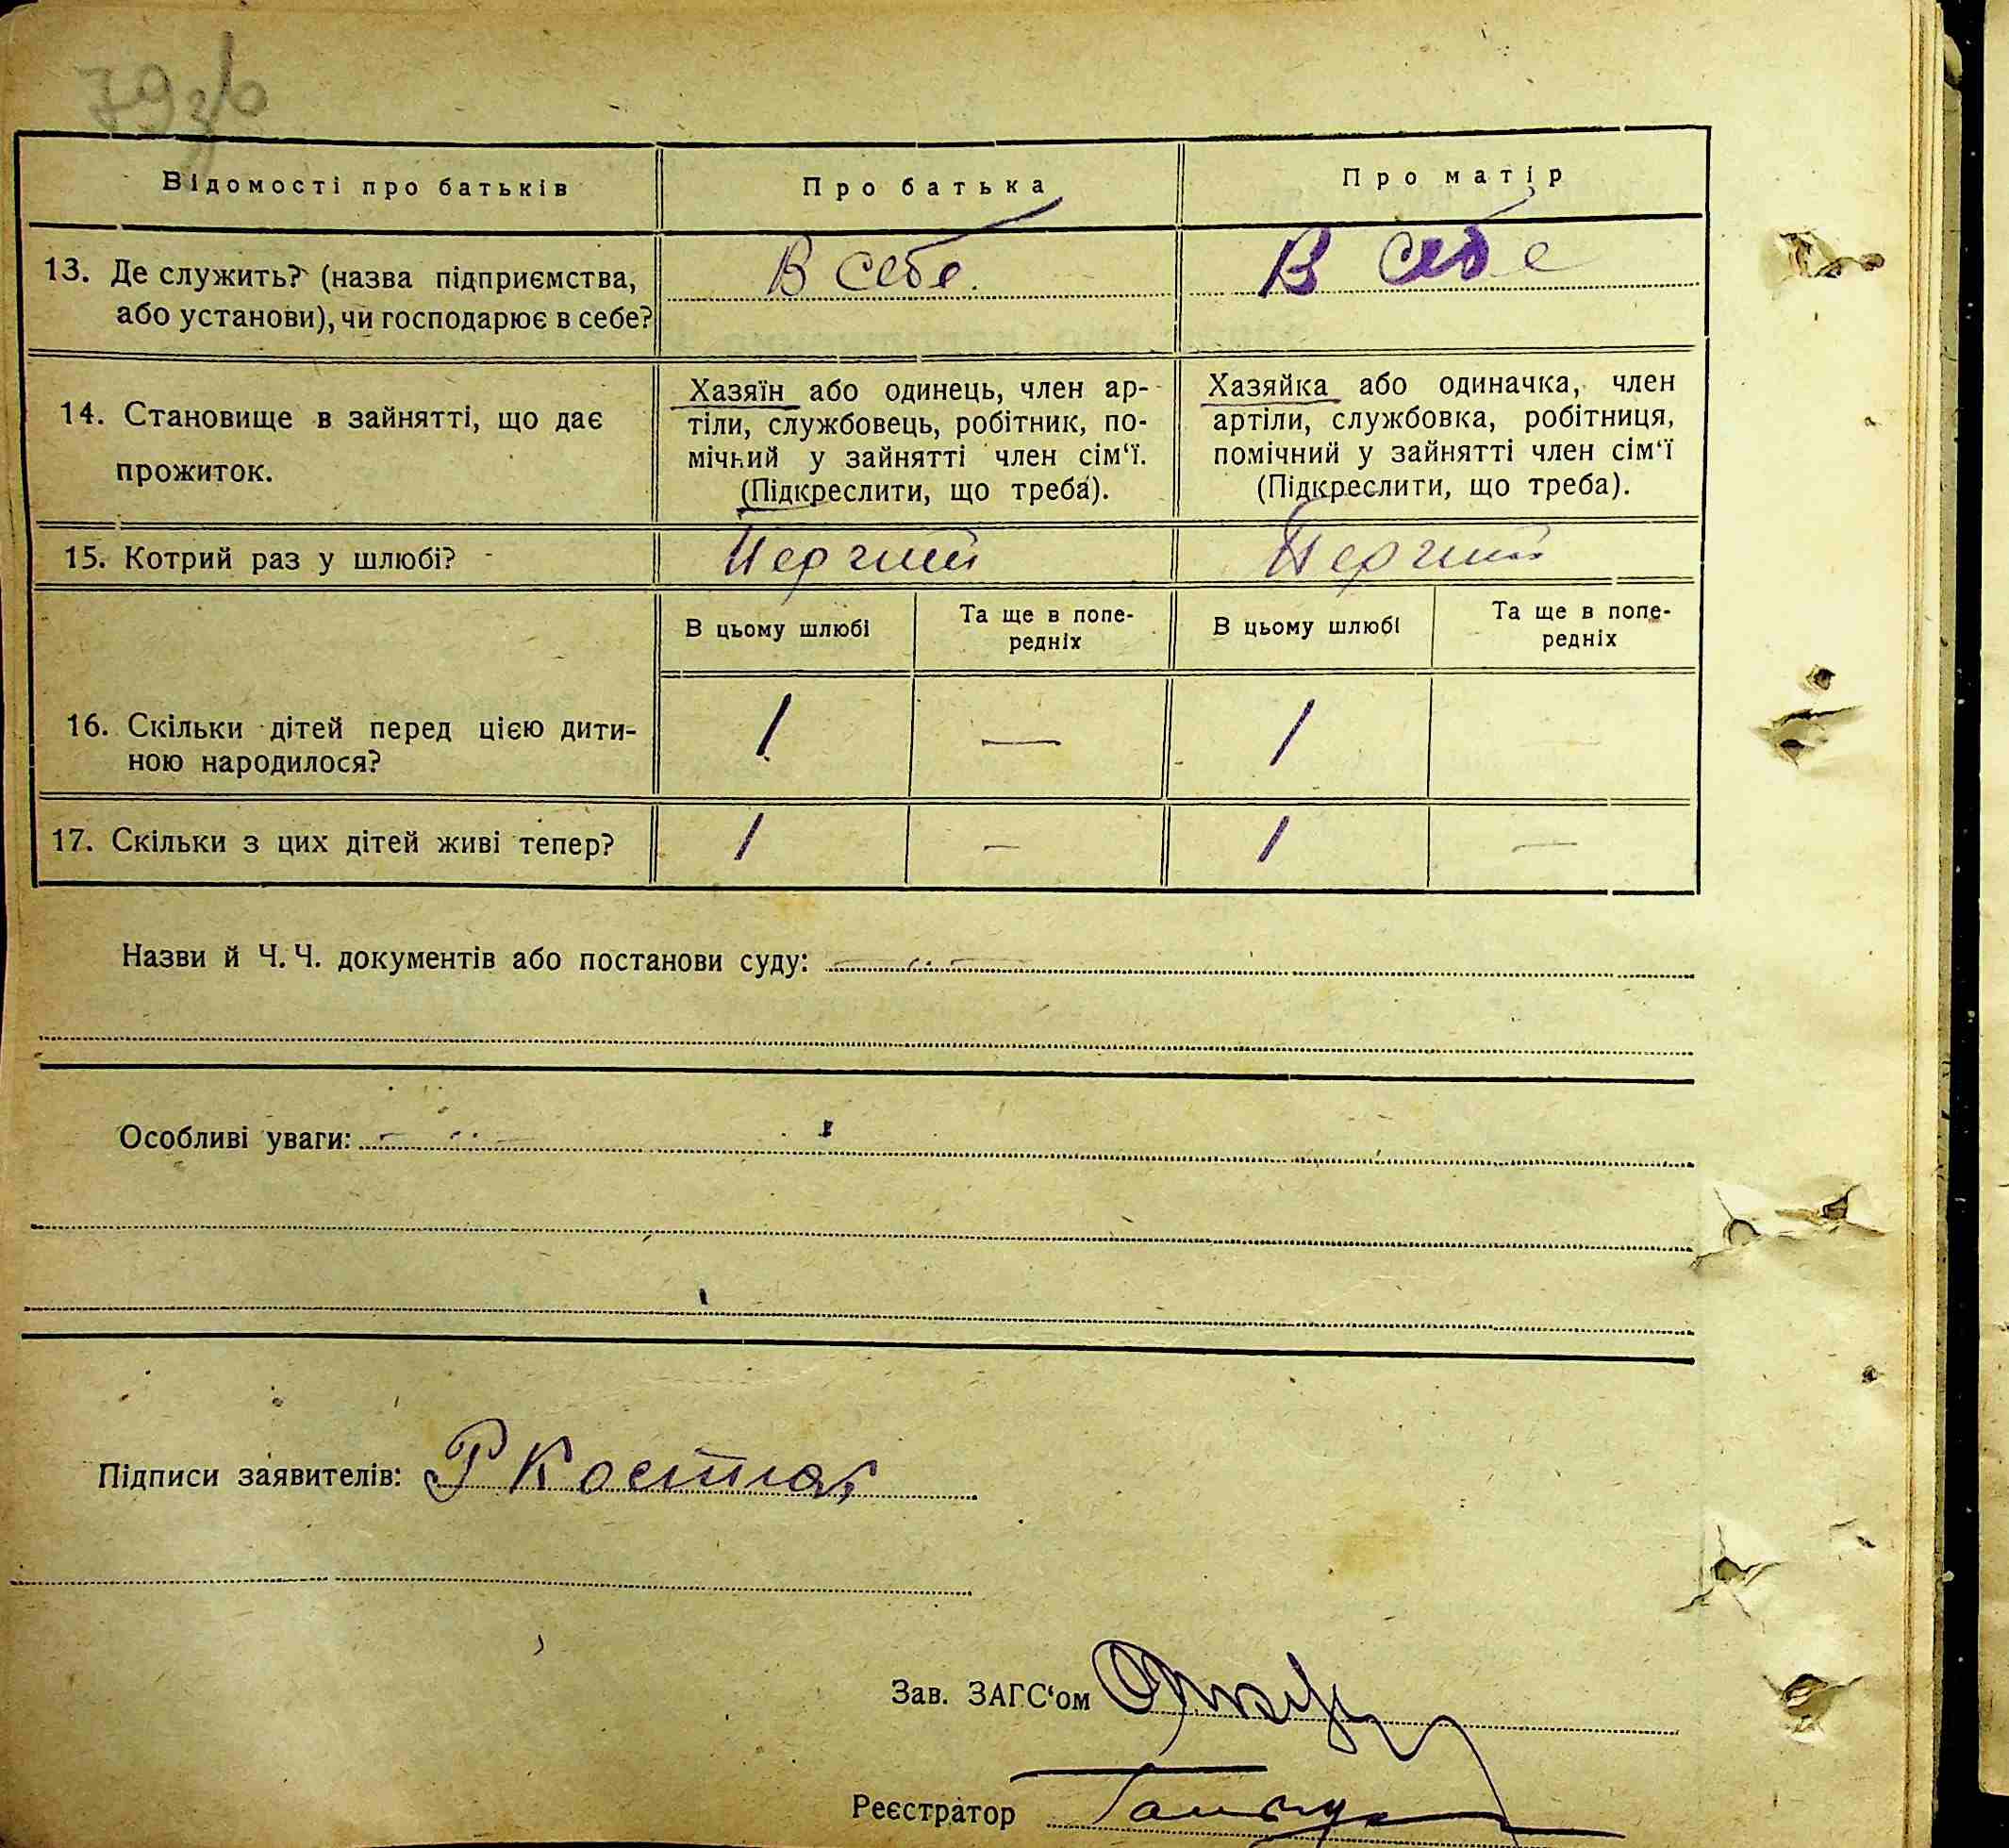 79 зв
Відомості про батьків
Про батька
Про матір
13. Де служить? (назва підприємства,
або установи), чи господарює в себе?
В себе.
В себе
14. Становище в зайнятті, що дає
прожиток.
Хазяїн або одинець, член ар-
тіли, службовець, робітник, по-
мічний у зайнятті член сім‘ї.
(Підкреслити, що треба).
Хазяйка або одиначка, член
артіли, службовка, робітниця,
помічний у зайнятті член сім‘ї
(Підкреслити, що треба).
15. Котрий раз у шлюбі?
Перший
Перший
В цьому шлюбі
Та ще в попе-
редніх
В цьому шлюбі
Та ще в попе-
редніх
16. Скільки дітей перед цією дити-
ною народилося?
1
—
1
17. Скільки з цих дітей живі тепер?
1
—
1
—
Назви й Ч. Ч. документів або постанови суду:
Особливі уваги:
Підписи заявителів:
Зав. ЗАГС‘ом
Реєстратор